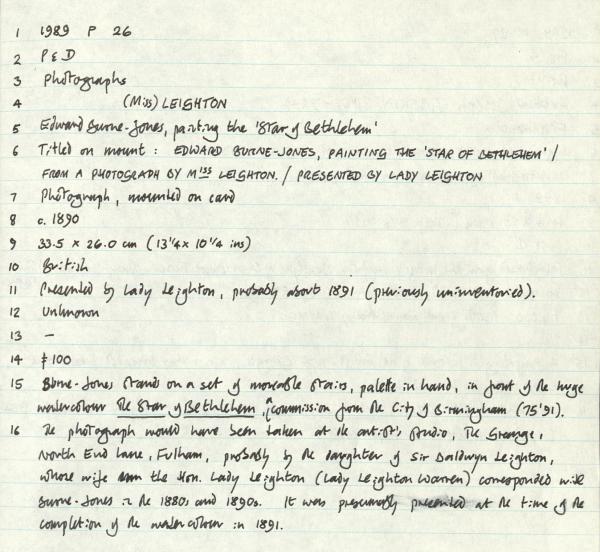 1 1989 P 26
2 P & D
3 Photographs
4 (Miss) LEIGHTON
5 Edward Burne-Jones, painting the 'Star of Bethlehem'
6 Titled on mount : EDWARD BURNE-JONES, PAINTING THE 'STAR OF BETHLEHEM' /
FROM A PHOTOGRAPH BY Miss LEIGHTON. / PRESENTED BY LADY LEIGHTON
7 Photograph, mounted on card
8 c. 1890
9 33.5 x 26.0 cm (13 1/4 x 10 1/4 ins)
10 British
11 Presented by Lady Leighton, probably about 1891 (previously uninventoried).
12 Unknown
13 —
14 £100
15 Burne-Jones stands on a set of moveable stairs, palette in hand, in front of the huge
watercolour The Star of Bethlehem, a commission from the City of Birmingham (75'91).
16 The photograph would have been taken at the artist's studio, The Grange,
North End Lane, Fulham, probably by the daughter of Sir Baldwyn Leighton,
whose wife the Hon. Lady Leighton (Lady Leighton Warren) corresponded with
Burne-Jones in the 1880s and 1890s. It was presumably presented at the time of the
completion of the watercolour in 1891.